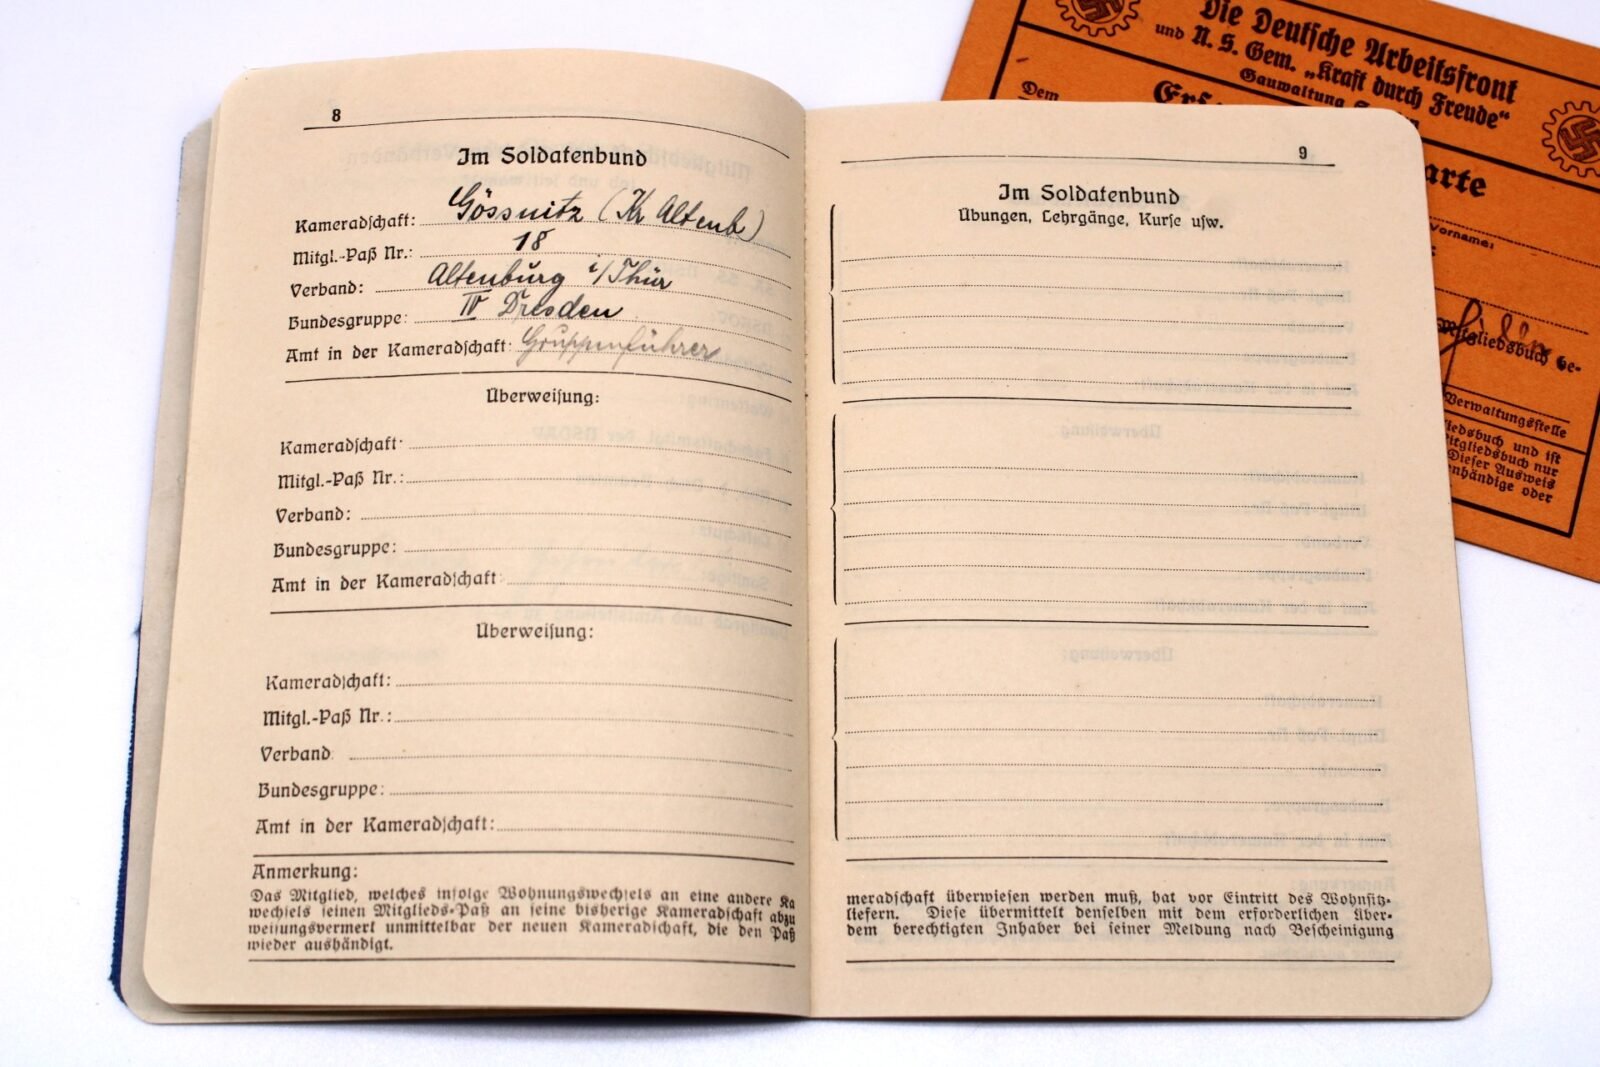 8
Im Soldatenbund
Kameradschaft: Gössnitz (Kr Altenb)
Mitgl.-Paß Nr.: 18
Verband: Altenburg i/Thür
Bundesgruppe: IV Dresden
Amt in der Kameradschaft: Gruppenführer
Überweisung:
Kameradschaft:
Mitgl.-Paß Nr.:
Verband:
Bundesgruppe:
Amt in der Kameradschaft:
Überweisung:
Kameradschaft:
Mitgl.-Paß Nr.:
Verband
Bundesgruppe:
Amt in der Kameradschaft:
Anmerkung:
Das Mitglied, welches infolge Wohnungswechsels an eine andere Ka
wechsels seinen Mitglieds-Paß an seine bisherige Kameradschaft abzu
weisungsvermerk unmittelbar der neuen Kameradschaft, die den Paß
wieder aushändigt.
9
Im Soldatenbund
Übungen, Lehrgänge, Kurse usw.
meradschaft überwiesen werden muß, hat vor Eintritt des Wohnsitz-
liefern. Diese übermittelt denselben mit dem erforderlichen Über-
dem berechtigten Inhaber bei seiner Meldung nach Bescheinigung
Die Deutsche Arbeitsfront
und N. S. Gem. „Kraft durch Freude“
Gauwaltung
Dem
arte
Vorname:
Mitgliedsbuch be-
Verwaltungsstelle
iedsbuch und ist
itgliedsbuch nur
Dieser Ausweis
enhändige oder